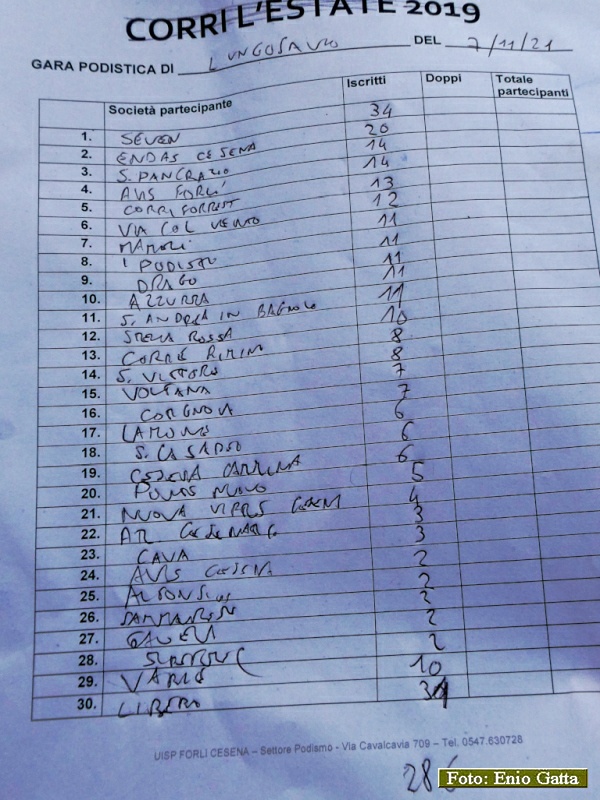 CORRI L'ESTATE 2019
GARA PODISTICA DI LUNGOSAVIO DEL 7/11/21
Società partecipante Iscritti Doppi Totale partecipanti
1. SEVEN 34
2. ENDAS CESENA 20
3. S. PANCRAZIO 14
4. AVIS FORLI' 14
5. CORRIFORREST 13
6. VIA COL VENTO 12
7. MAMELI 11
8. I PODISTI 11
9. DRAGO 11
10. AZZURRA 11
11. S. ANDREA IN BAGNOLO 11
12. STELLA ROSSA 10
13. CORRE RIMINI 8
14. S. VITTORE 8
15. VOLTANA 7
16. 7
17. LAMONE 6
18. 6
19. CESENA 6
20. 5
21. NUOVA 4
22. 3
23. CAVA 3
24. AVIS CESENA 2
25. 2
26. 2
27. 2
28. 2
29. VARIE 10
30. LIBERO 31
UISP FORLI CESENA – Settore Podismo - Via Cavalcavia 709 – Tel. 0547.630728
286
Foto: Enio Gatta